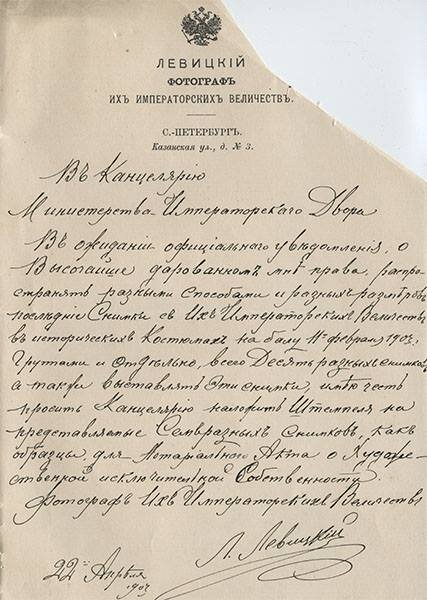 ЛЕВИЦКІЙ
ФОТОГРАФЪ
ИХЪ ИМПЕРАТОРСКИХЪ ВЕЛИЧЕСТВЪ.
С.-ПЕТЕРБУРГЪ.
Казанская ул., д. № 3.
Въ Канцелярію
Министерства Императорскаго Двора
Въ ожиданіи официальнаго увѣдомленія, о
Высочайше дарованномъ мнѣ права, распро-
странять разными способами и разныхъ размѣровъ
послѣдніе Снимки съ Ихъ Императорскихъ Величествъ
въ историческихъ Костюмахъ на балу 11го февраля 1903г.
Группами и отдѣльно, всего Десять разныхъ снимковъ
а также выставлять эти снимки, имѣю честь
просить Канцелярію наложить Штемпеля на
представляемые Семь разныхъ снимковъ, какъ
образцы, для Нотаріальнаго Акта о Художе-
ственной исключительной Собственности.
Фотографъ Ихъ Императорскихъ Величествъ
Л. Левицкій
22го Апрѣля